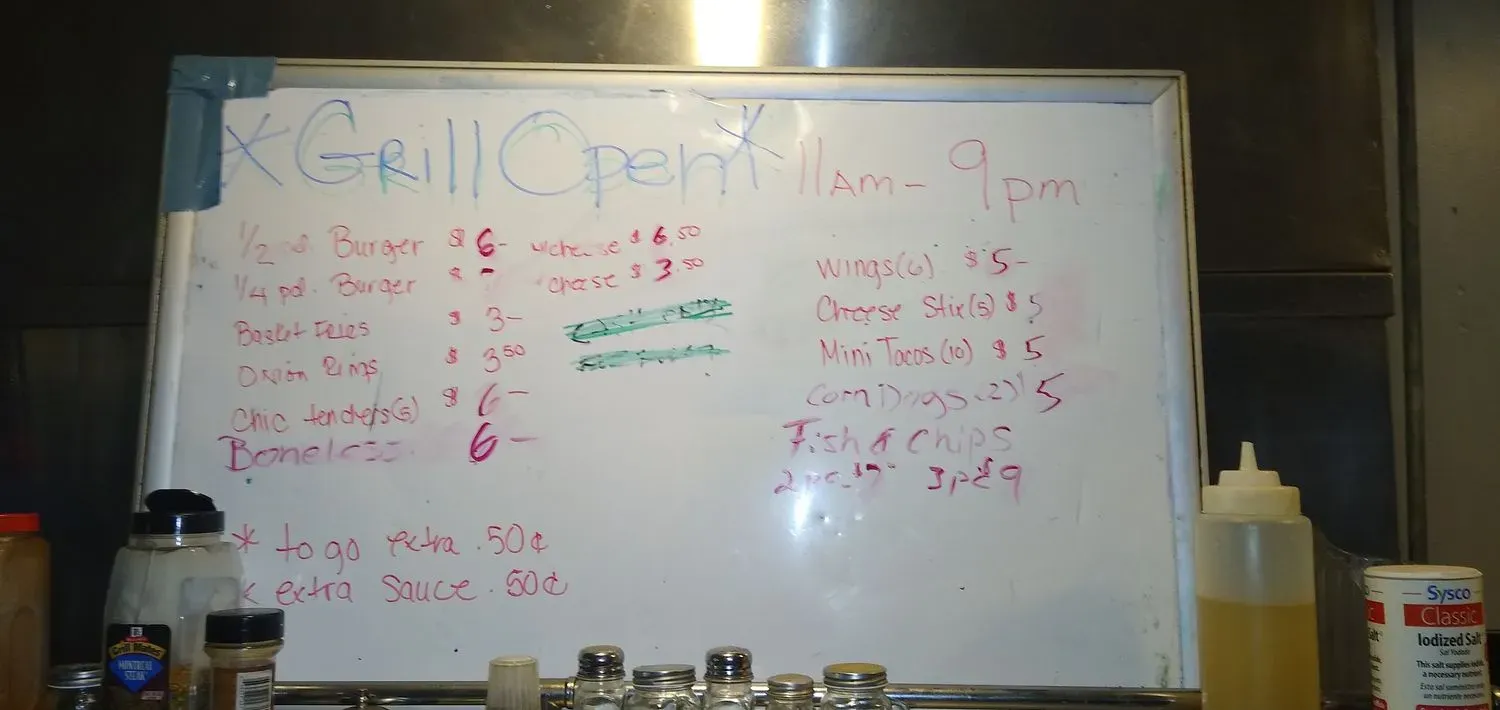 *Grill Open* 11am - 9pm
1/2 Burger $6- w/cheese $6.50
1/4 pd. Burger $ cheese $3.50
Basket Fries $3-
Onion Rings $3.50
Chic tenders(5) $6-
Boneless 6-
wings(6) $5-
Cheese Stix(5) $5
Mini Tacos (10) $5
Corn Dogs (2) 5
Fish & Chips
2pc $7 3pc $9
* to go extra .50¢
* extra Sauce .50¢
Grill Mates
MONTREAL
STEAK
Sysco
Classic
Iodized Salt
Sal Yodada
This salt supplies iodide,
a necessary nutrient.